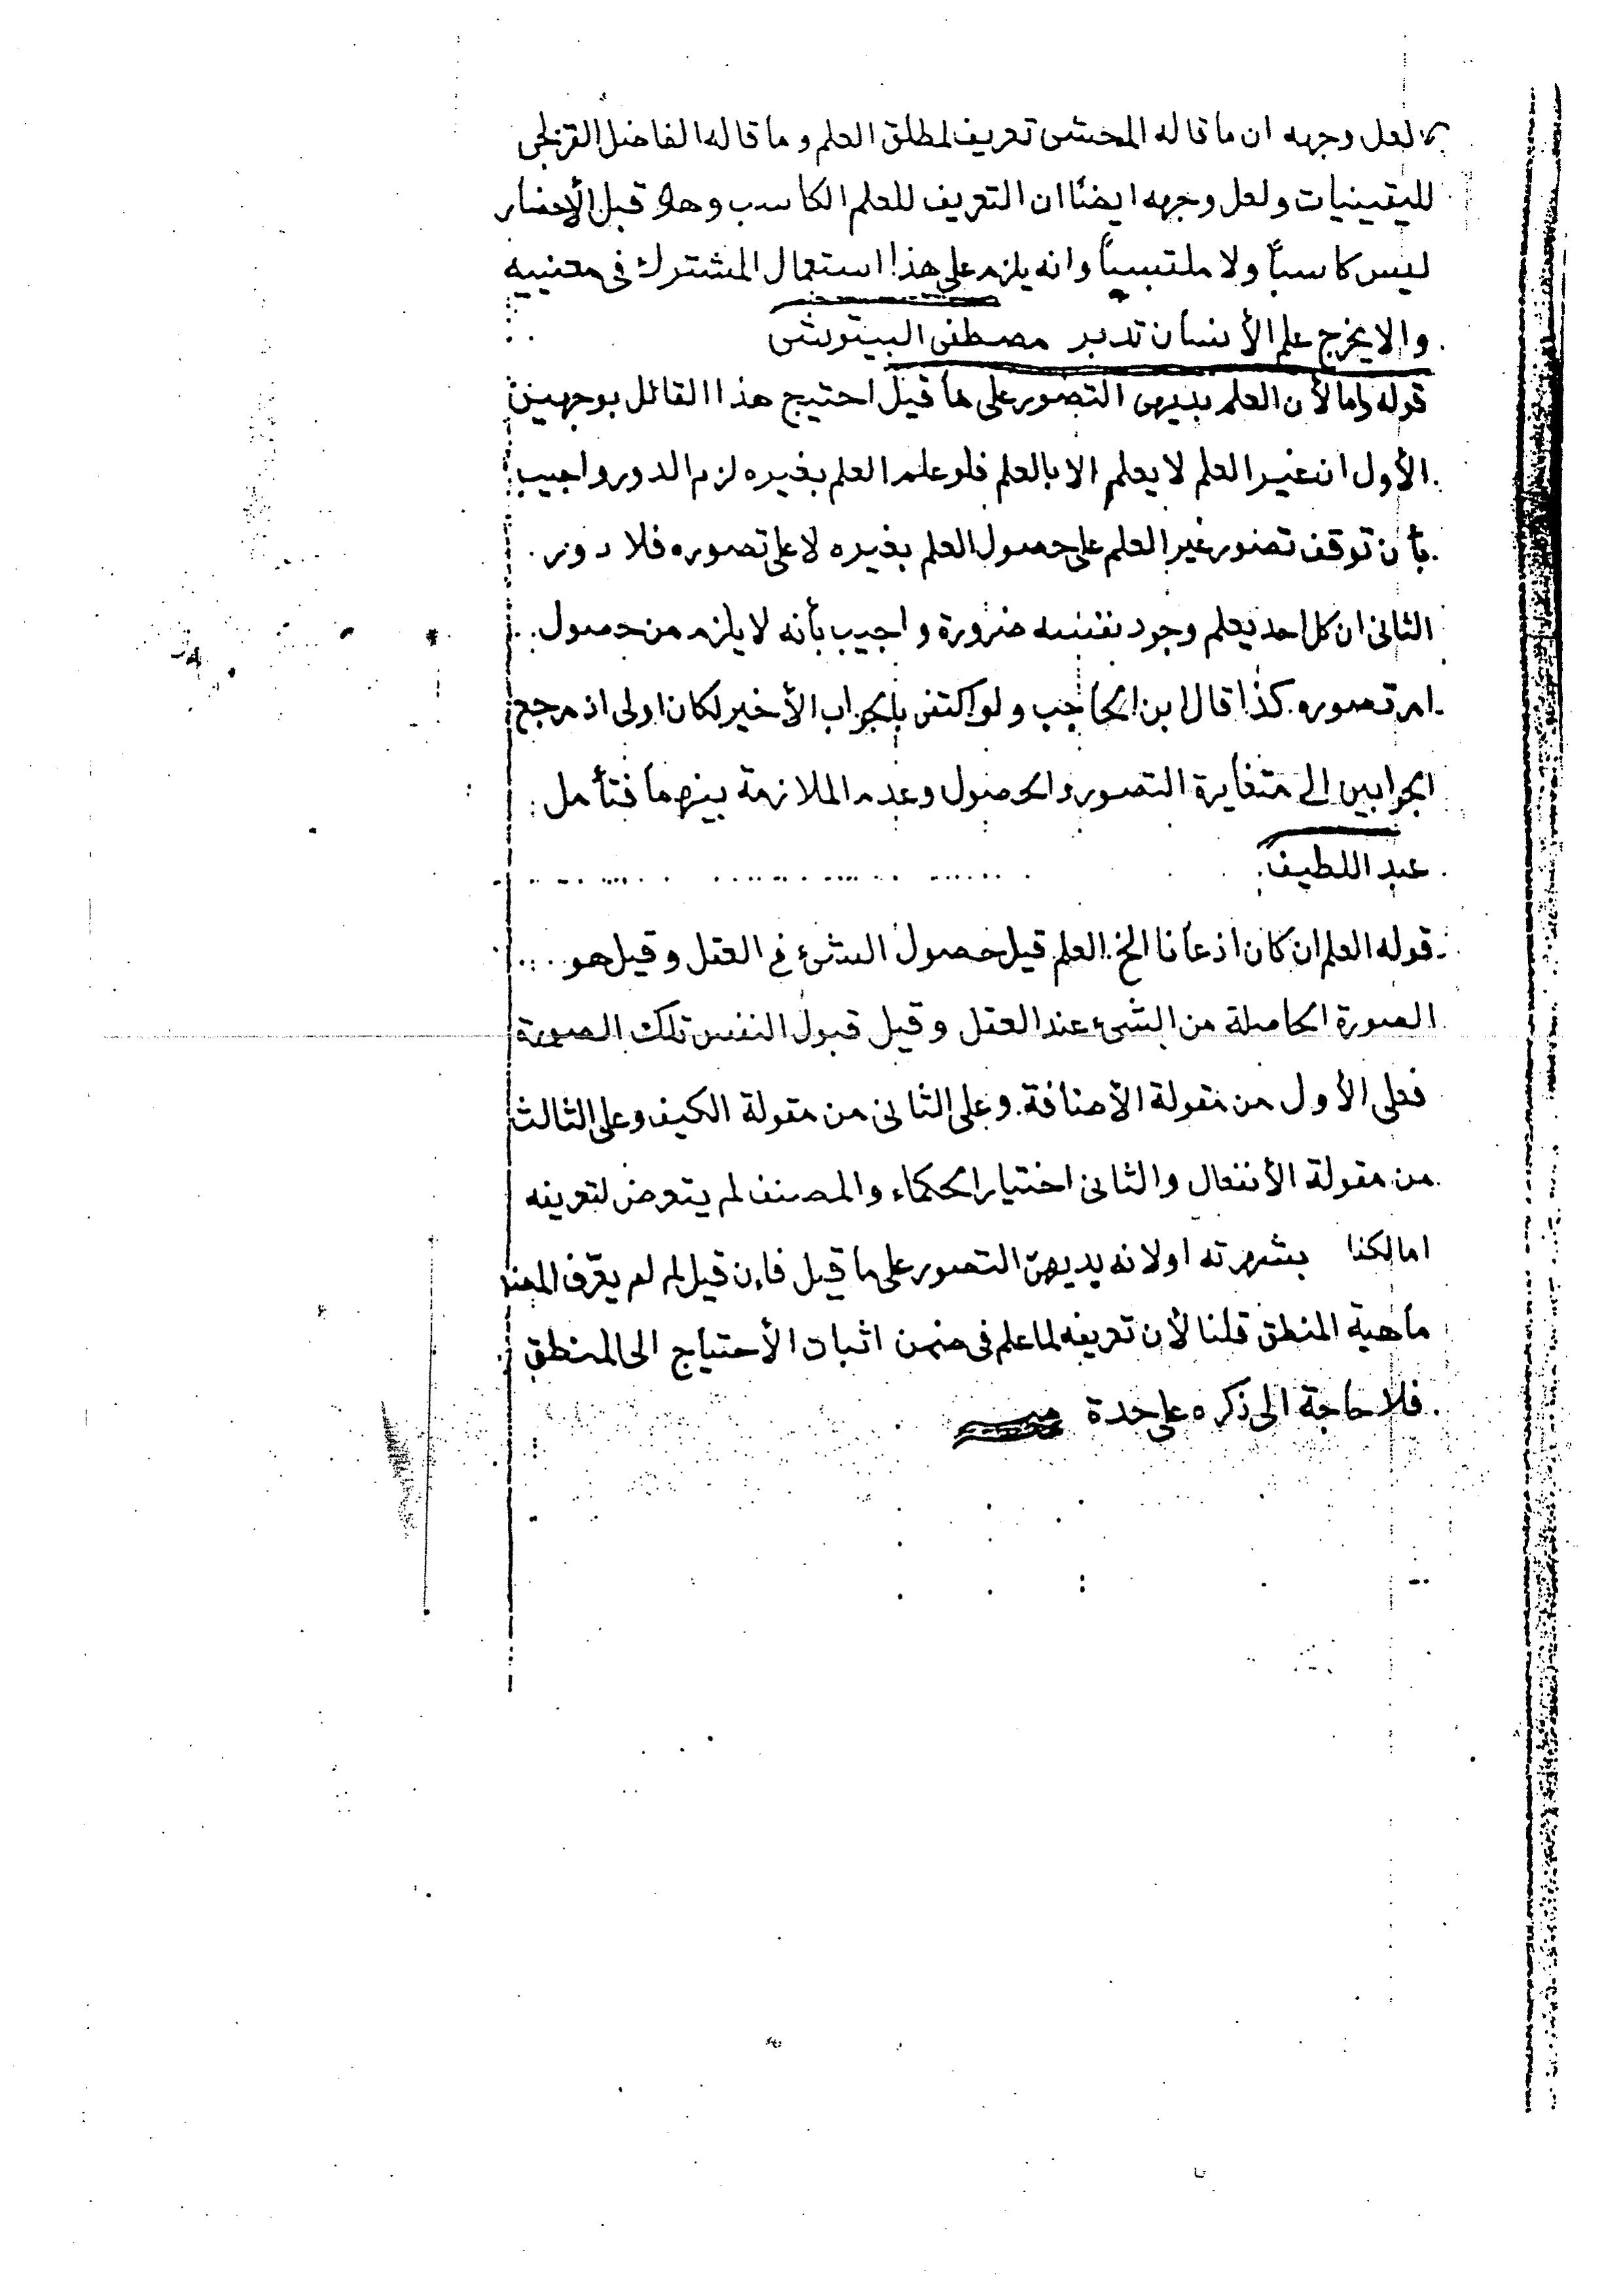 لعل وجهه ان ما قاله المحشى تعريف لمطلق العلم و ما قاله الفاضل القزلجى
لليقينيات و لعل وجهه ايضًا ان التعريف للعلم الكاسب و هو قبل الأحضار
ليس كاسبًا و لا ملتبسيًا و انه يلزم على هذا استعمال المشترك فى معنييه
و الا يخرج علم الأنسان تدبر مصطفى البيتوشى
قوله و اما لأن العلم بديهى التصور على ما قيل احتيج هذا القائل بوجهين
الأول ان غير العلم لا يعلم الا بالعلم فلو علم العلم بغيره لزم الدور و اجيب
بأن توقف تصور غير العلم على حصول العلم بغيره لا على تصوره فلا دور
الثانى ان كل احد يعلم وجود نفسه ضرورة و اجيب بأنه لا يلزم من حصول
امر تصوره كذا قال ابن الحاجب و لو اكتفى بالجواب الأخير لكان اولى اذ مرجع
الجوابين الى متغايرة التصور و الحصول و عدم الملازمة بينهما فتأمل
عبد اللطيف
قوله العلم ان كان اذعانا الخ العلم قيل حصول الشئ فى العقل و قيل هو
الصورة الحاصلة من الشئ عند العقل و قيل قبول النفس تلك الصورة
فعلى الأول من مقولة الأضافة و على الثانى من مقولة الكيف و على الثالث
من مقولة الأنفعال و الثانى اختيار الحكماء و المصنف لم يتعرض لتعريفه
اما لكنا بشهرته او لانه بديهى التصور على ما قيل فإن قيل لم لم يعرّف المصنف
ماهية المنطق قلنا لأن تعريفه لما علم فى ضمن اثبات الأحتياج الى المنطق
فلا حاجة الى ذكره على حدة